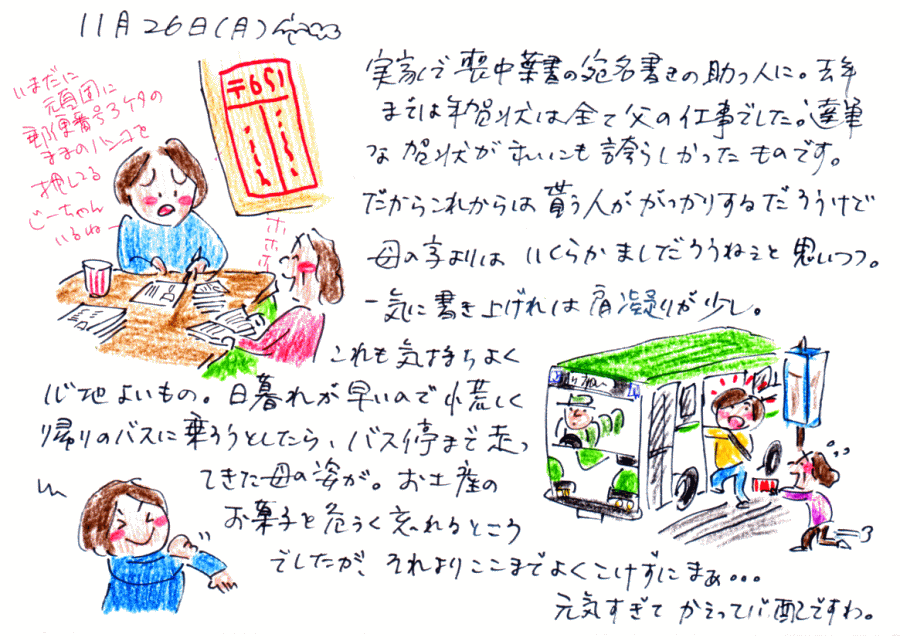 11月26日(月)
いまだに
頑固に
郵便番号3ケタの
ままのハンコを
押してる
じーちゃん
いるね
〒651
ホホホ
実家で喪中葉書の宛名書きの助っ人に。去年
までは年賀状は全て父の仕事でした。達筆
な賀状がすいにも誇らしかったものです。
だからこれからは貰う人ががっかりするだろうけど
母の字よりは いくらかましだろうねぇと思いつつ。
一気に書き上げれば肩凝りが少し。
これも気持ちよく
心地よいもの。日暮れが早いので慌しく
帰りのバスに乗ろうとしたら、バス停まで走っ
てきた母の姿が。お土産の
お菓子を危うく忘れるところ
でしたが、それよりここまでよくこけずにまぁ・・・
元気すぎて かえって心配ですわ。